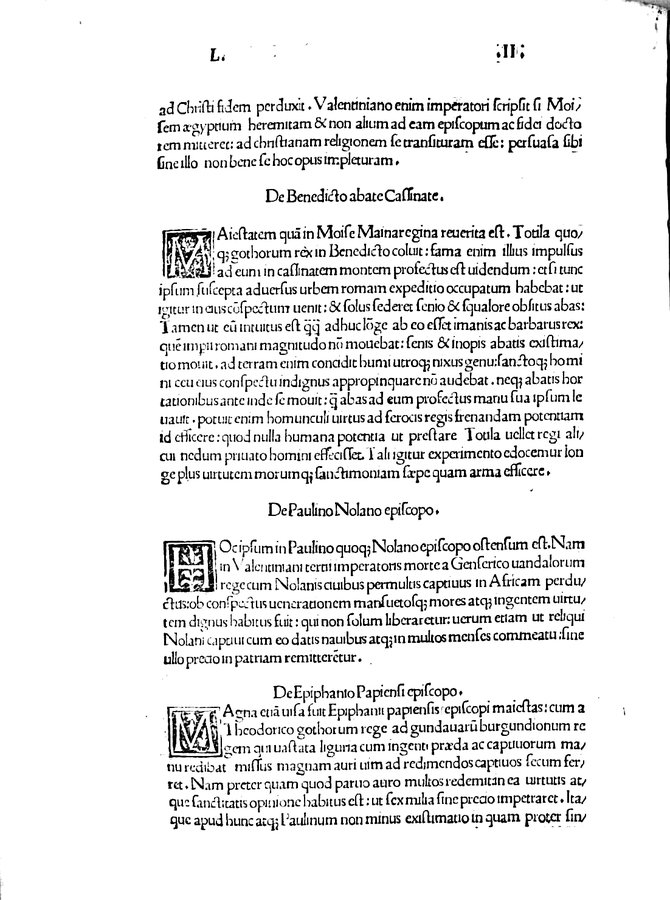 L. .II.
ad Christi fidem perduxit. Valentiniano enim imperatori scripsit si Moi/
sem ægyptium heremitam & non alium ad eam episcopum ac fidei docto
rem mitteret: ad christianam religionem se transituram esse: persuasa sibi
sine illo non bene se hoc opus impleturam.
De Benedicto abate Cassinate.
MAiestatem quā in Moise Maina regina reuerita est. Totila quo/
q; gothorum rex in Benedicto coluit: fama enim illius impulsus
ad eum in cassinatem montem profectus est uidendum: etsi tunc
ipsum suscepta aduersus urbem romam expeditio occupatum habebat: ut
igitur in eius cōspectum uenit: & solus sederet senio & squalore obsitus abas:
Tamen ut eū intuitus est q̄q̄ adhuc lōge ab eo esset imanis ac barbarus rex:
quē imperii romani magnitudo nō mouebat: senis & inopis abatis existima/
tio mouit. ad terram enim concidit humi utroq; nixus genu: sanctoq; homi
ni ceu eius conspectu indignus appropinquare nō audebat. neq; abatis hor
tationibus ante inde se mouit: q̄ abas ad eum profectus manu sua ipsum le
uauit. potuit enim homunculi uirtus ad ferocis regis frenandam potentiam
id efficere: quod nulla humana potentia ut prestare Totila uellet regi ali/
cui nedum priuato homini effecisset. Tali igitur experimento edocemur lon
ge plus uirtutem morumq; sanctimoniam sæpe quam arma efficere.
De Paulino Nolano episcopo.
HOc ipsum in Paulino quoq; Nolano episcopo ostensum est. Nam
in Valentiniani tertii imperatoris morte a Genserico uandalorum
rege cum Nolanis ciuibus permultis captiuus in Africam perdu/
ctus: ob conspectus uenerationem mansuetosq; mores atq; ingentem uirtu/
tem dignus habitus fuit: qui non solum liberaretur: uerum etiam ut reliqui
Nolani captiui cum eo datis nauibus atq; in multos menses commeatu: sine
ullo precio in patriam remitterētur.
De Epiphanio Papiensi episcopo.
MAgna etiā uisa fuit Epiphanii papiensis episcopi maiestas: cum a
Theodorico gothorum rege ad gundauarū burgundionum re
gem qui uastata liguria cum ingenti præda ac captiuorum ma/
nu redibat missus magnam auri uim ad redimendos captiuos secum fer/
ret. Nam preter quam quod paruo auro multos redemit an ea uirtutis at/
que sanctitatis opinione habitus est: ut sex milia sine precio impetraret. Ita/
que apud hunc atq; Paulinum non minus existimatio in quam propter sin/